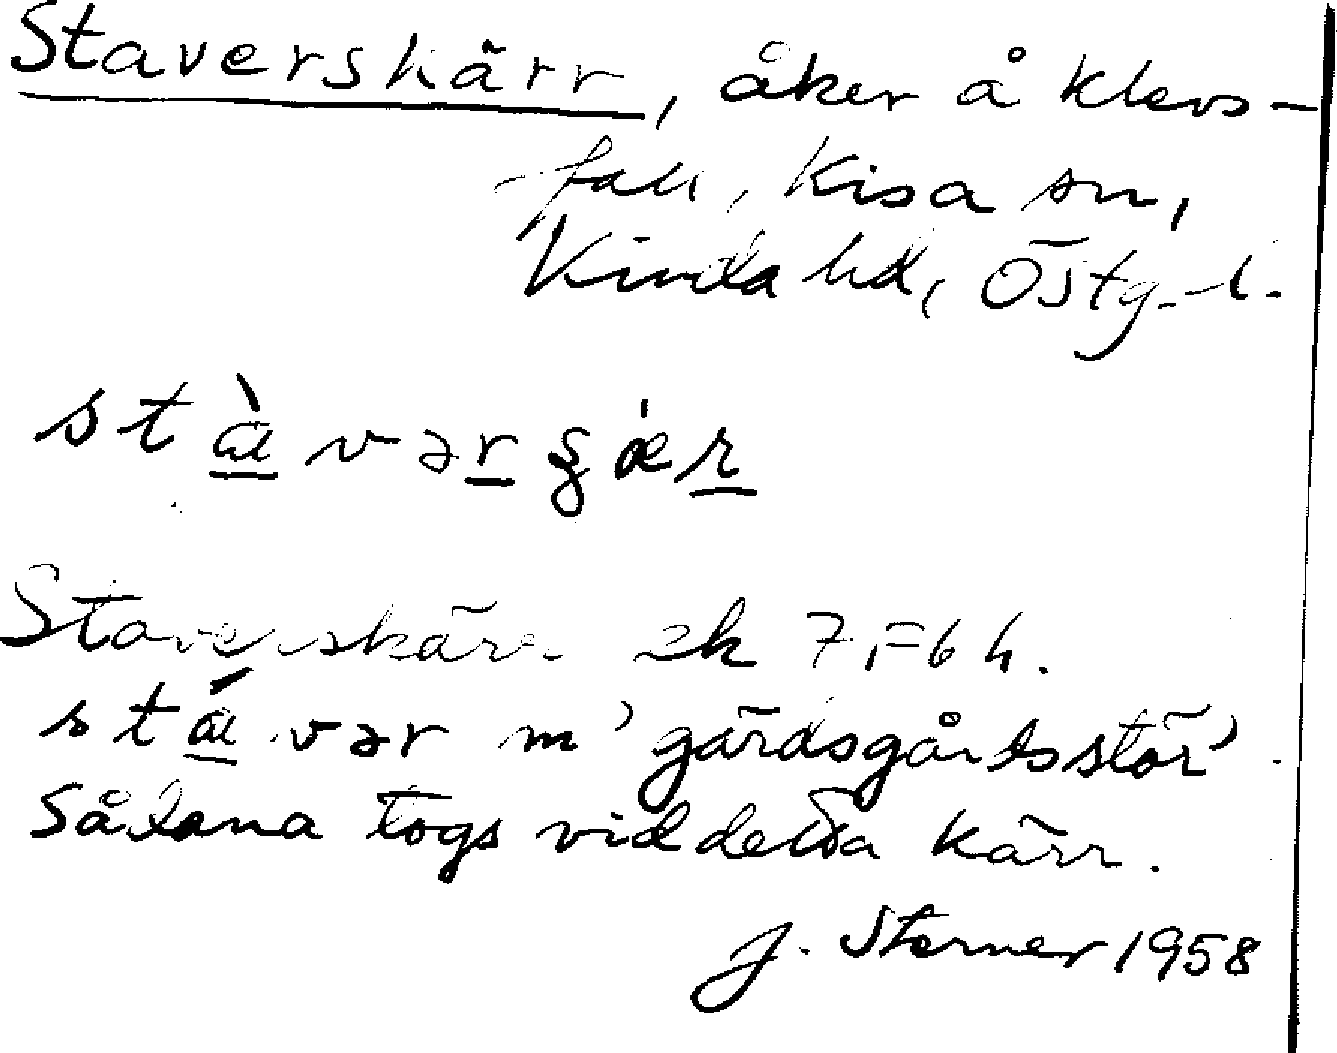 Staverskärr, åker å Klevs-
fall, Kisa sn,
Kinda hd, Östg. l.
stàvərşǽr
Staverskärr ek 7F6h.
stávər m 'gärdsgårdsstör'.
Sådana togs vid detta kärr.
J. Sterner 1958